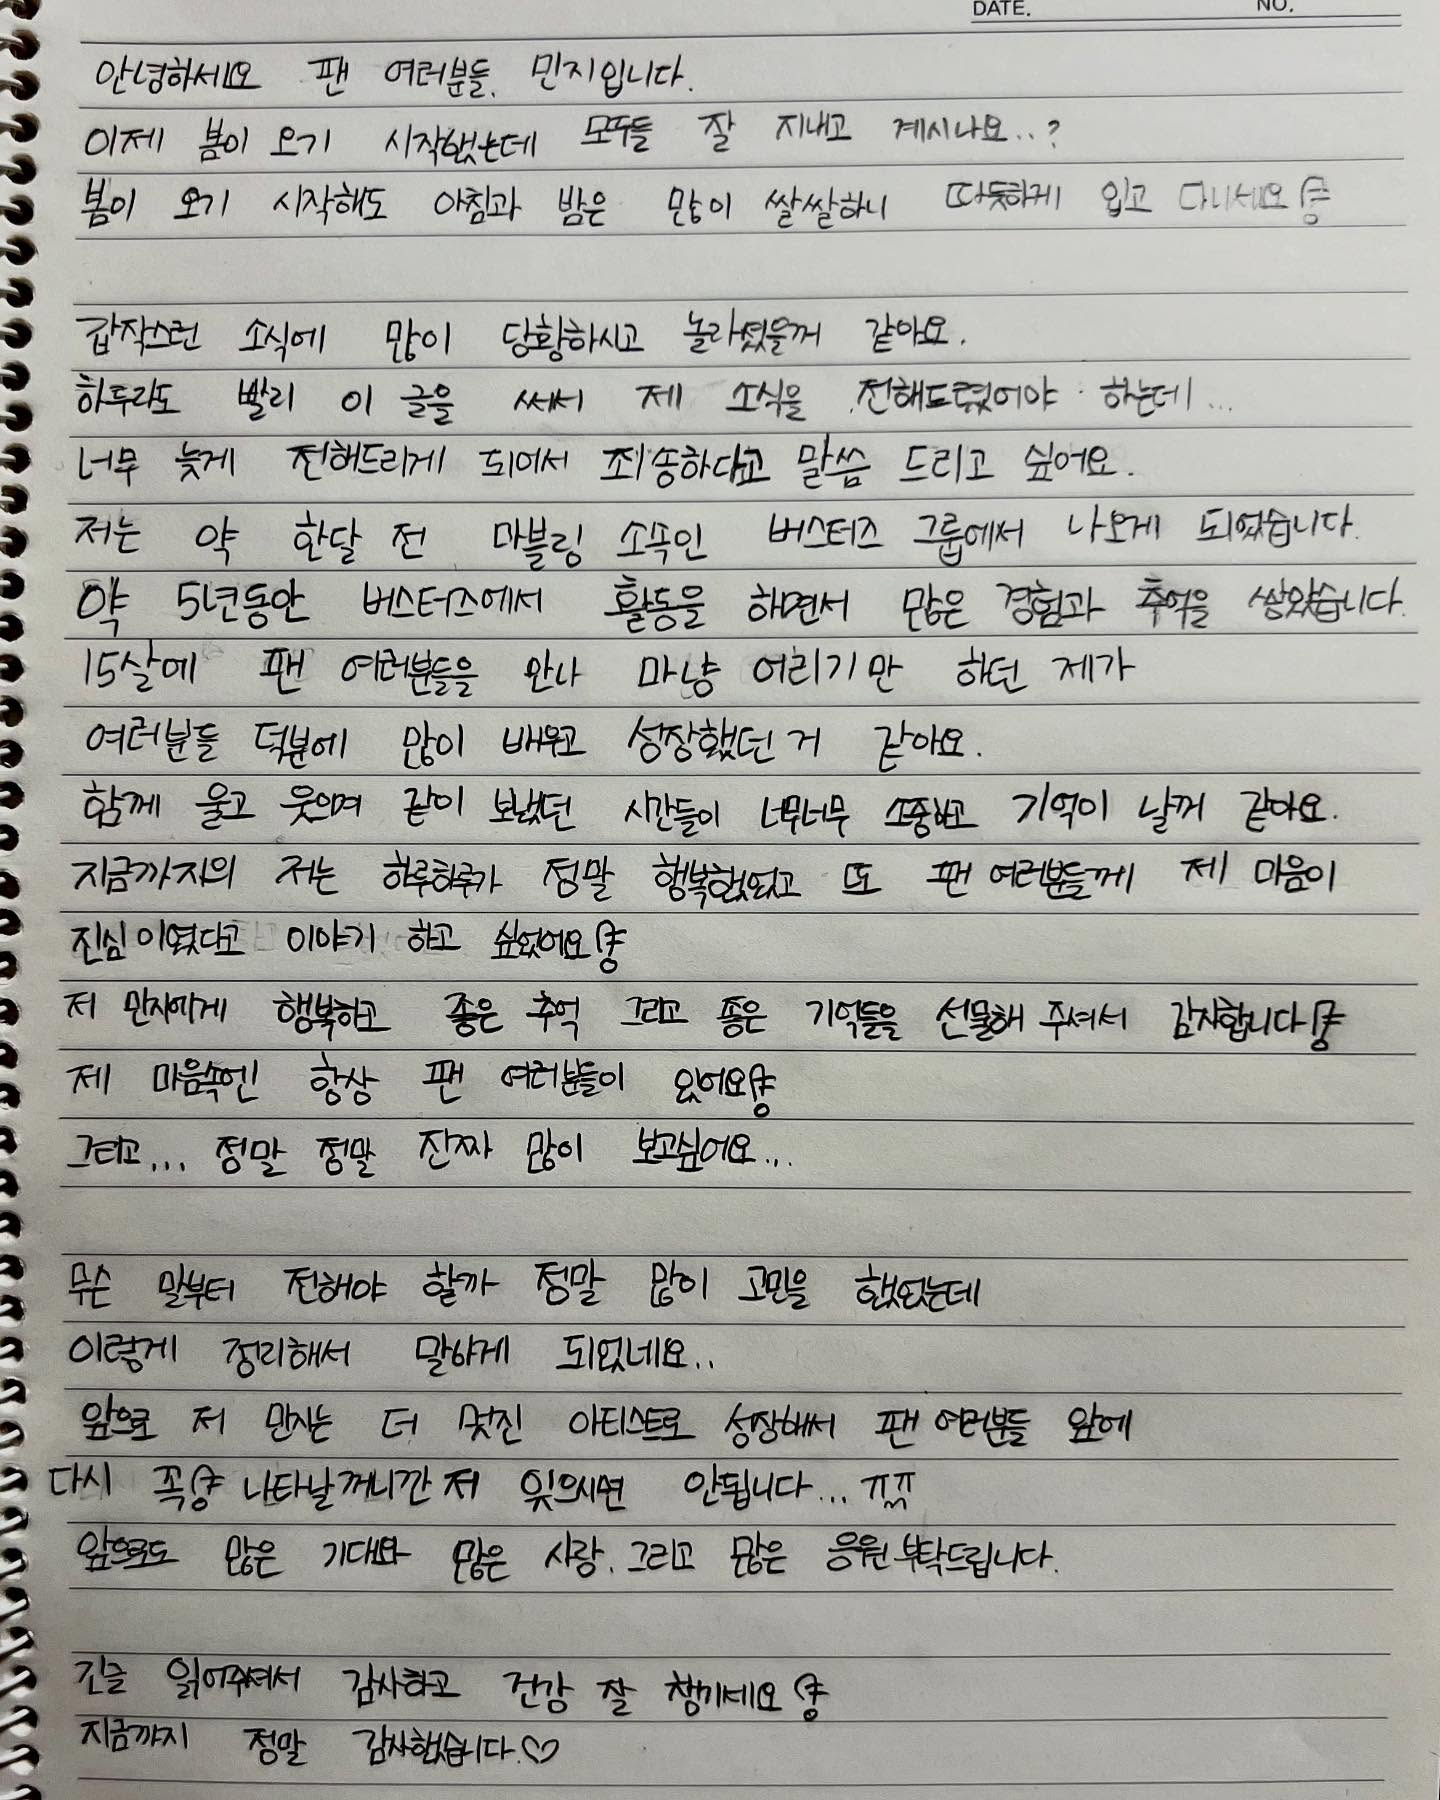 DATE. NO.
안녕하세요 팬 여러분들. 민지입니다.
이제 봄이 오기 시작했는데 모두들 잘 지내고 계시나요..?
봄이 오기 시작해도 아침과 밤은 많이 쌀쌀하니 따듯하게 입고 다니세요
갑작스런 소식에 많이 당황하시고 놀라셨을꺼 같아요.
하루라도 빨리 이 글을 써서 제 소식을 전해드렸어야 하는데...
너무 늦게 전해드리게 되어서 죄송하다고 말씀 드리고 싶어요.
저는 약 한달 전 마블링 소속인 버스터즈 그룹에서 나오게 되었습니다.
약 5년동안 버스터즈에서 활동을 하면서 많은 경험과 추억을 쌓았습니다.
15살에 팬 여러분들을 만나 마냥 어리기만 하던 제가
여러분들 덕분에 많이 배우고 성장했던 거 같아요.
함께 울고 웃으며 같이 보냈던 시간들이 너무너무 소중하고 기억이 날꺼 같아요.
지금까지의 저는 하루하루가 정말 행복했었고 또 팬 여러분들께 제 마음이
진심이였다고 이야기 하고 싶었어요
저 민지에게 행복하고 좋은 추억 그리고 좋은 기억들을 선물해 주셔서 감사합니다
제 마음속엔 항상 팬 여러분들이 있어요
그리고... 정말 정말 진짜 많이 보고싶어요...
무슨 말부터 전해야 할까 정말 많이 고민을 했었는데
이렇게 정리해서 말하게 되었네요..
앞으로 저 민지는 더 멋진 아티스트로 성장해서 팬 여러분들 앞에
다시 꼭 나타날꺼니깐 저 잊으시면 안됩니다... ㅠㅠ
앞으로도 많은 기대와 많은 사랑. 그리고 많은 응원 부탁드립니다.
긴글 읽어주셔서 감사하고 건강 잘 챙기세요
지금까지 정말 감사했습니다.♡